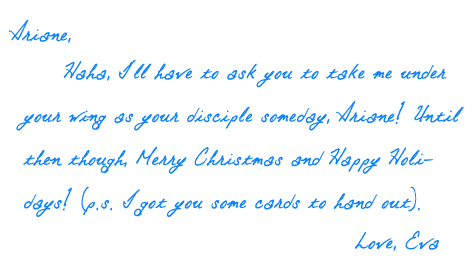 Ariane,
Haha, I'll have to ask you to take me under
your wing as your disciple someday, Ariane! Until
then though, Merry Christmas and Happy Holi-
days! (p.s. I got you some cards to hand out).
Love, Eva